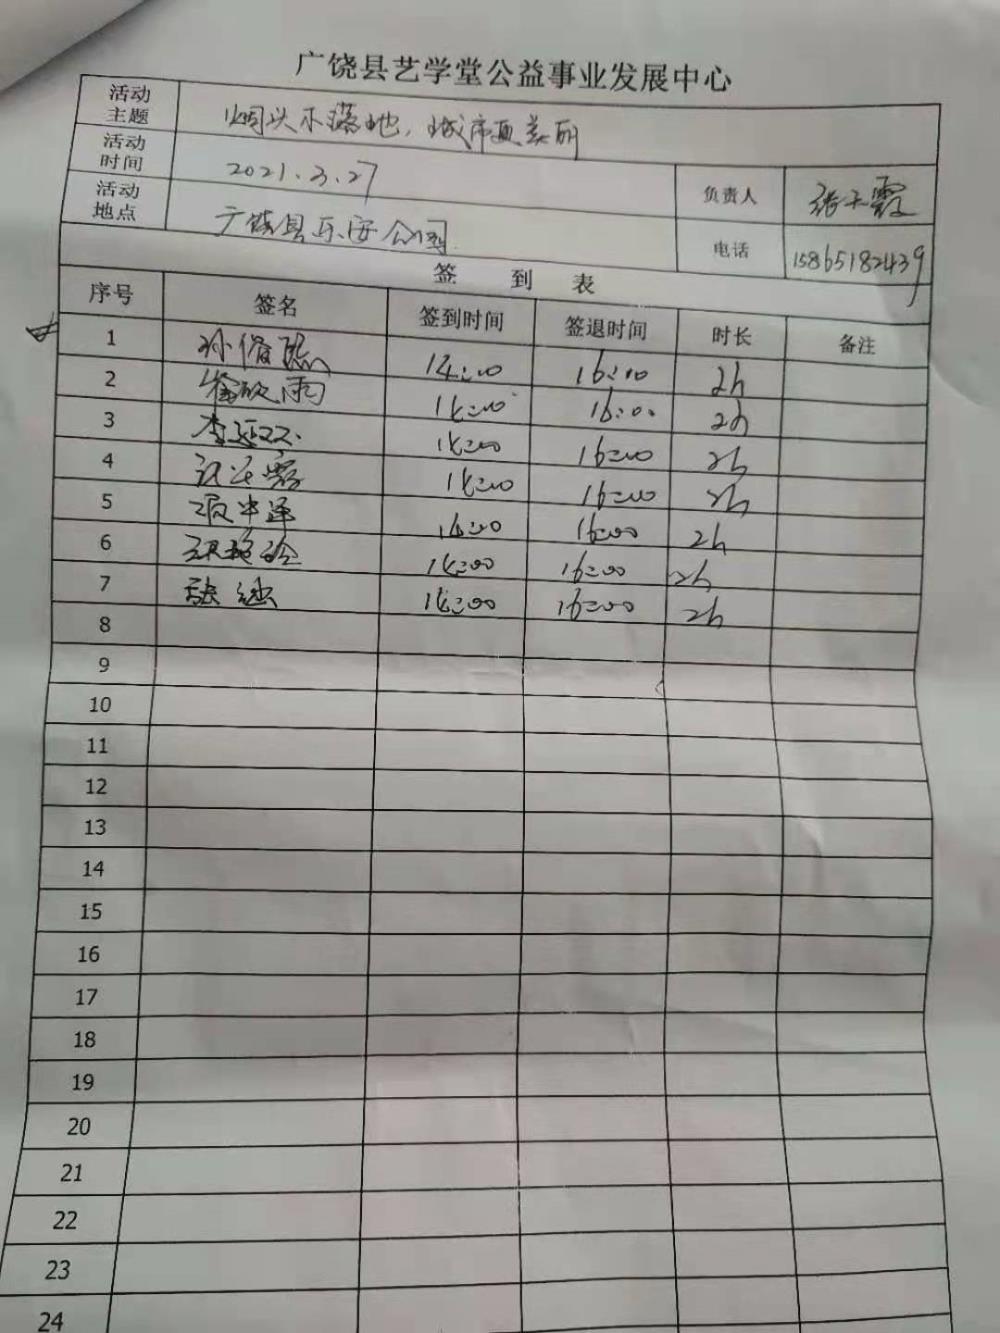 广饶县艺学堂公益事业发展中心
活动主题 烟头不落地，城市更美丽
活动时间 2021.3.27 负责人 张天霞
活动地点 广饶县乐安公园 电话 15865182439
签到表
序号 签名 签到时间 签退时间 时长 备注
1 14:00 16:00 2h
2 14:00 16:00 2h
3 14:00 16:00 2h
4 14:00 16:00 2h
5 14:00 16:00 2h
6 14:00 16:00 2h
7 14:00 16:00 2h
8
9
10
11
12
13
14
15
16
17
18
19
20
21
22
23
24